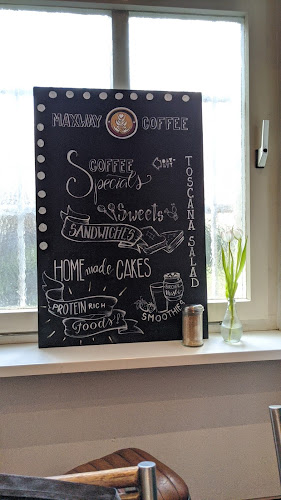 MAXWAY COFFEE
COFFEE
Specials
Sweets
SANDWICHES
HOMEmade CAKES
PROTEIN RICH
Goods!
SMOOTHIES
TOSCANA SALAD